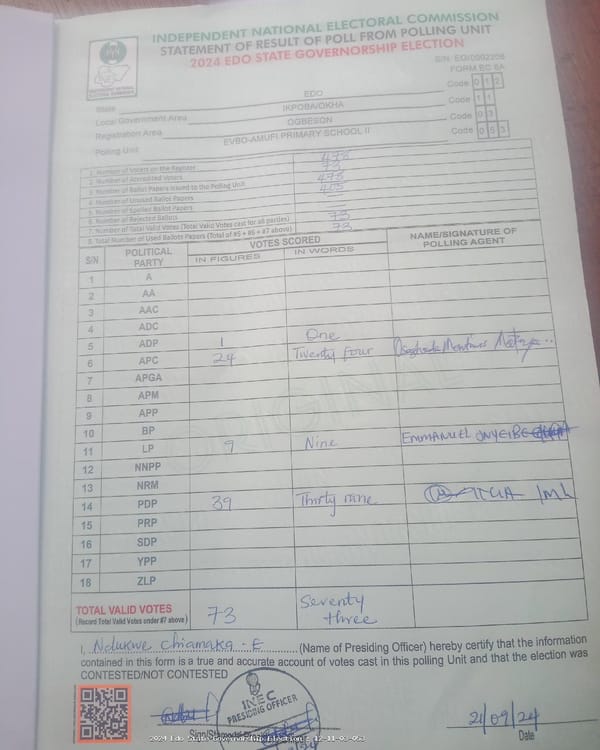 INDEPENDENT NATIONAL ELECTORAL COMMISSION
STATEMENT OF RESULT OF POLL FROM POLLING UNIT
2024 EDO STATE GOVERNORSHIP ELECTION
FORM EC 8A
State EDO Code 0 1 2
Local Government Area IKPOBA/OKHA Code 1 1
Registration Area OGBESON Code 0 3
Polling Unit EVBO-AMUFI PRIMARY SCHOOL II Code 0 5 3
1. Number of Voters on the Register 478
2. Number of Accredited Voters 73
3. Number of Ballot Papers Issued to the Polling Unit 478
4. Number of Unused Ballot Papers 405
5. Number of Spoiled Ballot Papers
6. Number of Rejected Ballots
7. Number of Total Valid Votes (Total Valid Votes cast for all parties) 73
8. Total Number of Used Ballots Papers (Total of #5 + #6 + #7 above) 73
S/N POLITICAL PARTY VOTES SCORED NAME/SIGNATURE OF POLLING AGENT
IN FIGURES IN WORDS
1 A
2 AA
3 AAC
4 ADC
5 ADP 1 One
6 APC 24 Twenty four
7 APGA
8 APM
9 APP
10 BP
11 LP 9 Nine EMMANUEL
12 NNPP
13 NRM
14 PDP 39 Thirty nine
15 PRP
16 SDP
17 YPP
18 ZLP
TOTAL VALID VOTES 73 Seventy three
(Record Total Valid Votes under #7 above)
I, Ndukwe Chiamaka - E (Name of Presiding Officer) hereby certify that the information
contained in this form is a true and accurate account of votes cast in this polling Unit and that the election was
CONTESTED/NOT CONTESTED
INEC
PRESIDING OFFICER
21/09/24
Date
2024 Edo State Governorship Election - 12-11-03-053